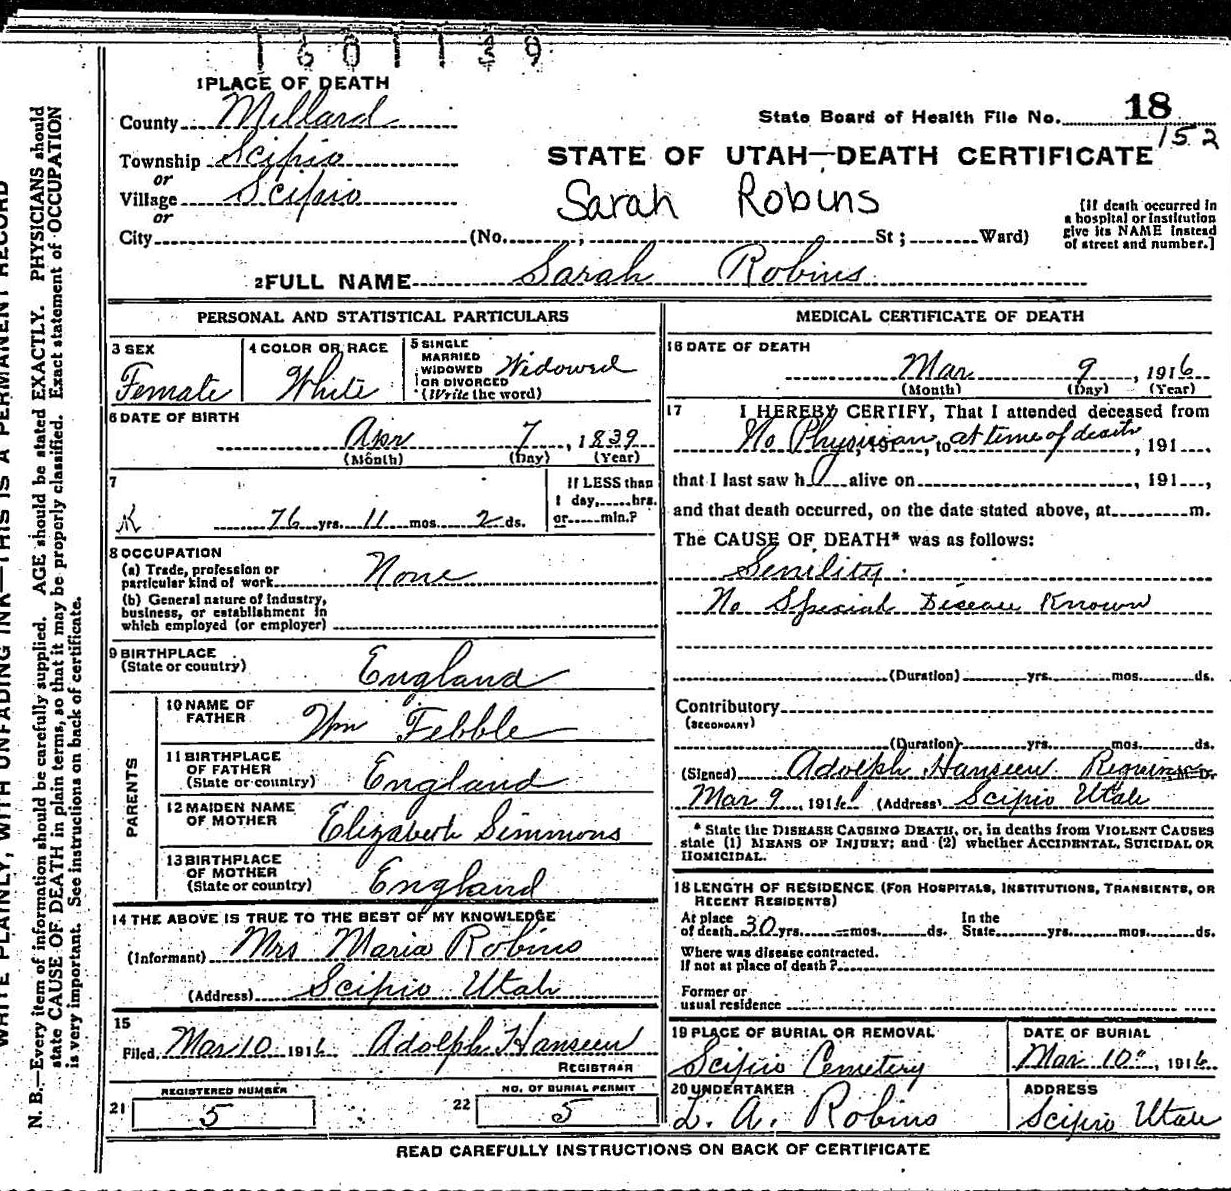 1601139
1 PLACE OF DEATH
County Millard
State Board of Health File No. 18
152
Township Scipio
or
Village Scipio
or
STATE OF UTAH—DEATH CERTIFICATE
Sarah Robins
[If death occurred in
a hospital or institution
give its NAME instead
of street and number.]
City (No. ; St ; Ward)
2 FULL NAME Sarah Robins
PERSONAL AND STATISTICAL PARTICULARS
3 SEX
Female
4 COLOR OR RACE
White
5 SINGLE
MARRIED
WIDOWED
OR DIVORCED
(Write the word)
Widowed
6 DATE OF BIRTH
Apr 7, 1839
(Month) (Day) (Year)
7
76 yrs. 11 mos. 2 ds.
If LESS than
1 day, hrs.
or min.?
8 OCCUPATION
(a) Trade, profession or
particular kind of work None
(b) General nature of Industry,
business, or establishment in
which employed (or employer)
9 BIRTHPLACE
(State or country)
England
PARENTS
10 NAME OF
FATHER
Wm Febble
11 BIRTHPLACE
OF FATHER
(State or country)
England
12 MAIDEN NAME
OF MOTHER
Elizabeth Simmons
13 BIRTHPLACE
OF MOTHER
(State or country)
England
14 THE ABOVE IS TRUE TO THE BEST OF MY KNOWLEDGE
(Informant) Mrs Maria Robins
(Address) Scipio Utah
15
Filed Mar 10 1916 Adolph Hanseen
REGISTRAR
21 REGISTERED NUMBER
5
22 NO. OF BURIAL PERMIT
5
MEDICAL CERTIFICATE OF DEATH
16 DATE OF DEATH
Mar 9, 1916
(Month) (Day) (Year)
17 I HEREBY CERTIFY, That I attended deceased from
No Physician, 191 , to at time of death, 191 ,
that I last saw h alive on , 191 ,
and that death occurred, on the date stated above, at m.
The CAUSE OF DEATH* was as follows:
Senility.
No Special Disease Known
(Duration) yrs. mos. ds.
Contributory
(SECONDARY)
(Duration) yrs. mos. ds.
(Signed) Adolph Hanseen M. D.
Mar 9, 1916 (Address) Scipio Utah
* State the DISEASE CAUSING DEATH, or, in deaths from VIOLENT CAUSES
state (1) MEANS OF INJURY; and (2) whether ACCIDENTAL, SUICIDAL OR
HOMICIDAL.
18 LENGTH OF RESIDENCE (FOR HOSPITALS, INSTITUTIONS, TRANSIENTS, OR
RECENT RESIDENTS)
At place
of death 30 yrs. mos. ds.
In the
State yrs. mos. ds.
Where was disease contracted.
If not at place of death?
Former or
usual residence
19 PLACE OF BURIAL OR REMOVAL
Scipio Cemetery
DATE OF BURIAL
Mar 10", 1916
20 UNDERTAKER
L. A. Robins
ADDRESS
Scipio Utah
READ CAREFULLY INSTRUCTIONS ON BACK OF CERTIFICATE
WRITE PLAINLY, WITH UNFADING INK—THIS IS A PERMANENT RECORD
N. B.—Every item of information should be carefully supplied. AGE should be stated EXACTLY. PHYSICIANS should
state CAUSE OF DEATH in plain terms, so that it may be properly classified. Exact statement of OCCUPATION
is very important. See instructions on back of certificate.